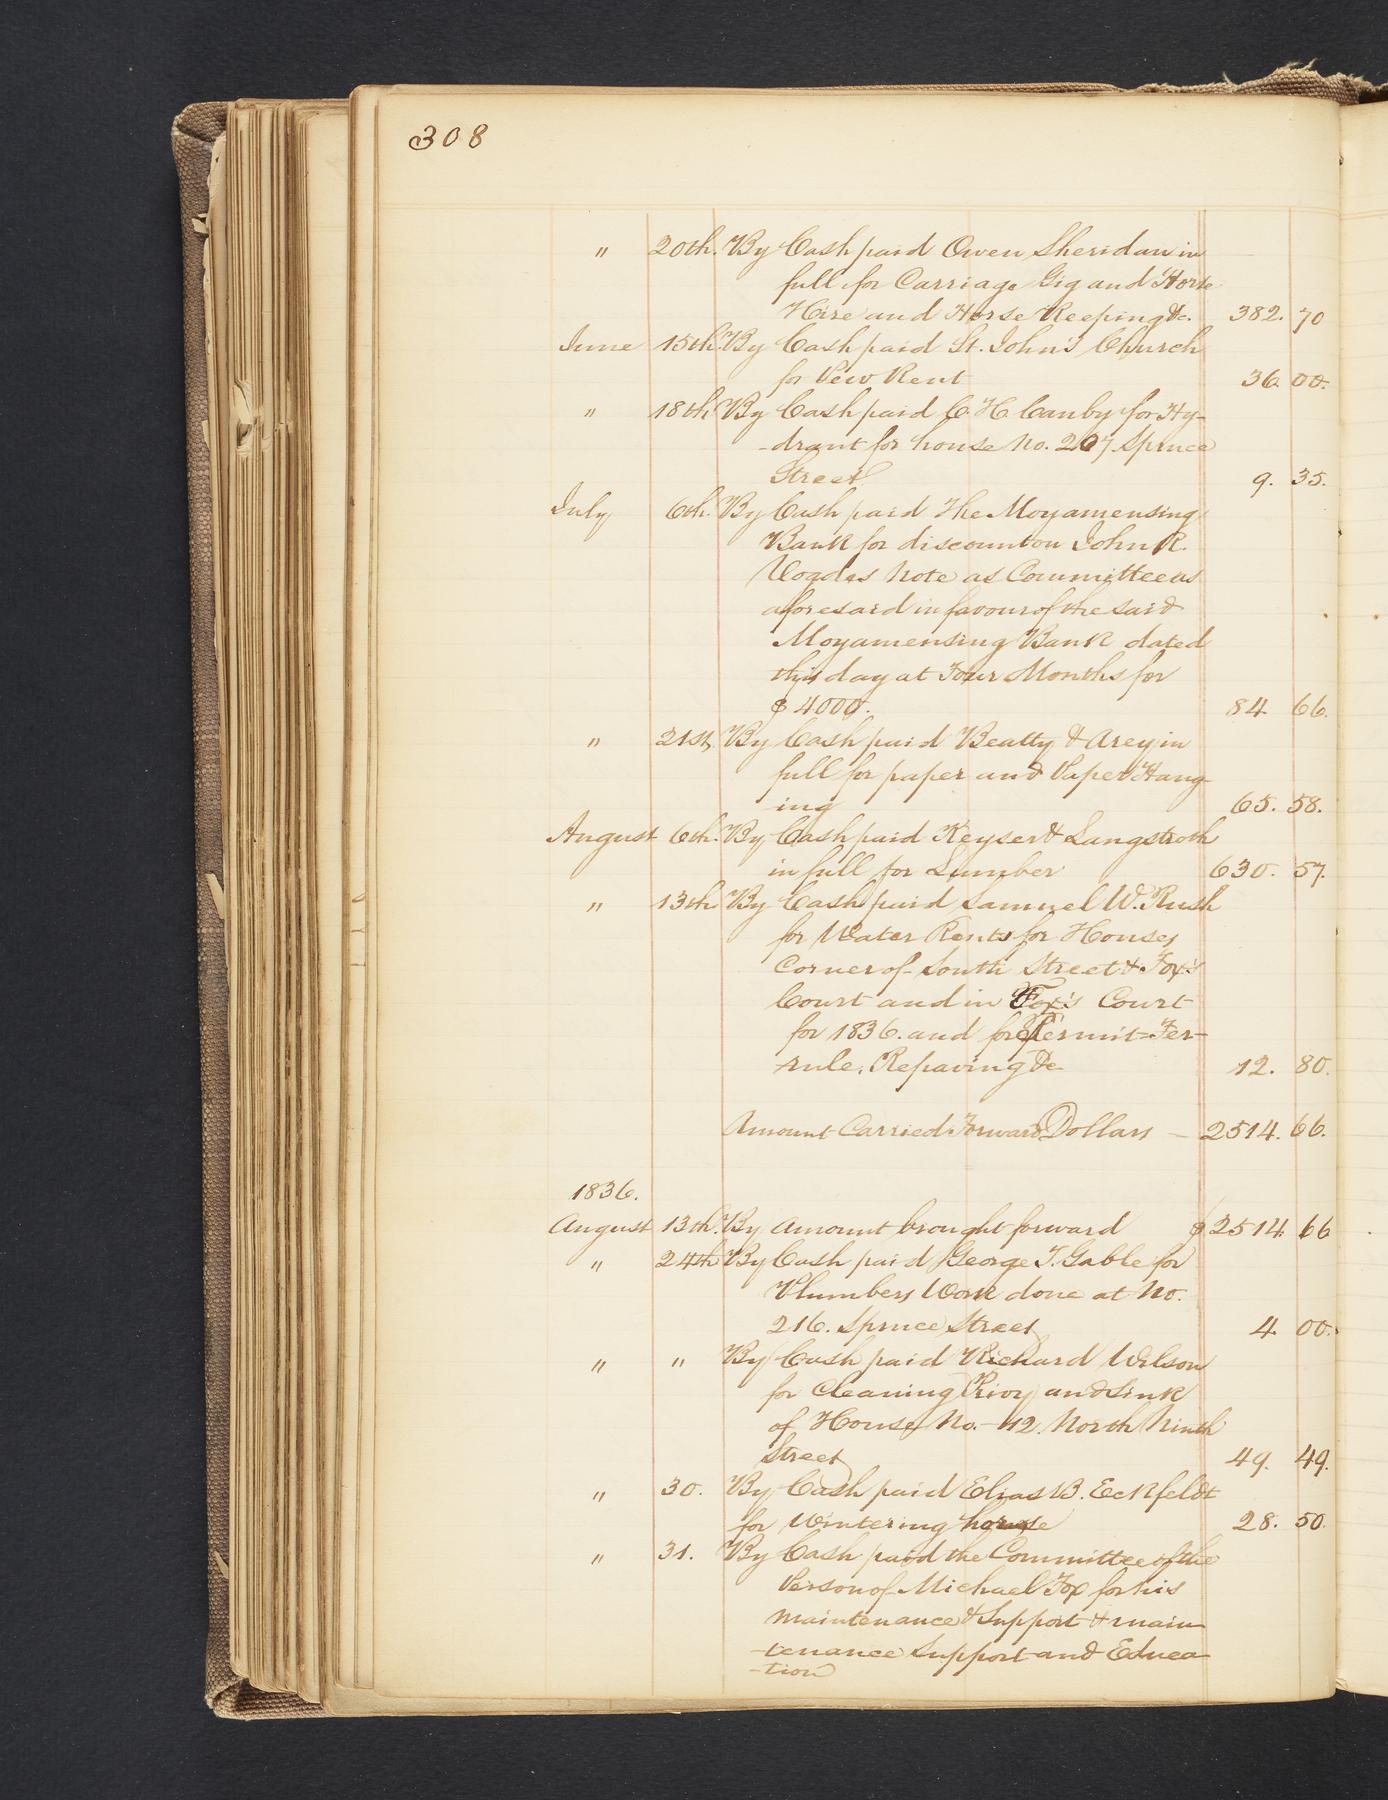 308
" 20th. By Cash paid Owen Sheridan in
full for Carriage Gig and Horse
Hire and Horse Keeping &c. 382. 70
June 15th. By Cash paid St. John's Church
for Pew Rent 36. 00.
" 18th By Cash paid C H Canby for Hy-
-drant for house No. 207 Spruce
Street 9. 35.
July 6th. By Cash paid The Moyamensing
Bank for discount on John R.
Vogdes Note as Committee as
aforesaid in favour of the said
Moyamensing Bank dated
this day at Four Months for
$4000. 84. 66.
" 21st. By Cash paid Beatty & Arey in
full for paper and Paper Hang-
ing 65. 58.
August 6th. By Cash paid Keyser & Langstroth
in full for Lumber 630. 57.
" 13th By Cash paid Samuel W. Rush
for Water Rents for Houses
Corner of South Street & Fox's
Court and in Fox's Court
for 1836. and for Permit-Fer-
-rule. Repaving &c 12. 80.
Amount Carried Forward Dollars — 2514. 66.
1836.
August 13th. By amount brought forward $2514. 66
" 24th By Cash paid George T. Gable for
Plumbers Work done at No.
216. Spruce Street 4. 00.
" " By Cash paid Richard Wilson
for Cleaning Privy and Sink
of House No.- 42. North Ninth
Street 49. 49.
" 30. By Cash paid Elias B. Eckfeldt
for Wintering horse 28. 50.
" 31. By Cash paid the Committee of the
Person of Michael Fox for his
maintenance & Support & main-
-tenance Support and Educa-
-tion